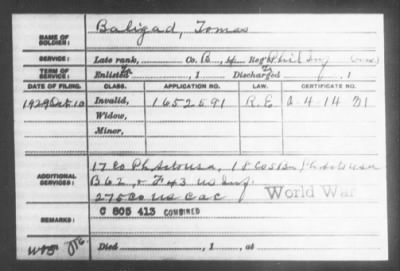 NAME OF SOLDIER: Baligad, Tomas
SERVICE: Late rank, Co. B, 4 Reg't Phil Inf
TERM OF SERVICE: Enlisted , 1 Discharged , 1
DATE OF FILING. CLASS. APPLICATION NO. LAW. CERTIFICATE NO.
1929 Oct 10 Invalid, 1652591 R.E A-4-14-31
Widow,
Minor,
17 Co Ph Sc to USA, 18 Co
ADDITIONAL SERVICES: B 62, & F 43 US Inf.
275 Co US CAC World War
REMARKS: C 805 413 COMBINED
Died , 1 , at